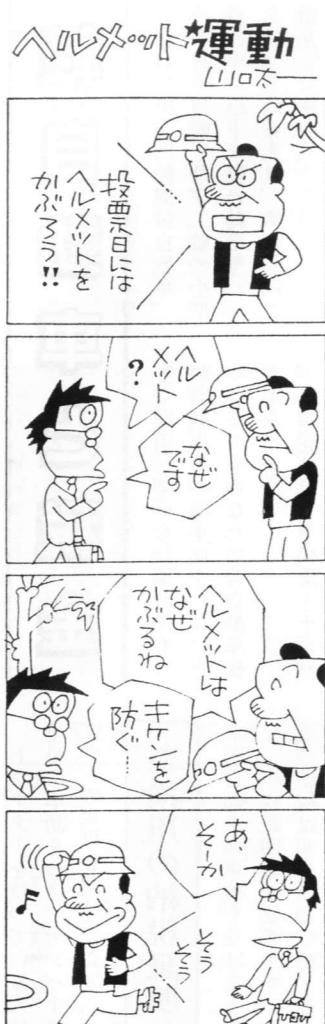 ヘルメット★運動
山口太一
投票日には
ヘルメットを
かぶろう!!
ヘル
メット
?
なぜ
です
ヘルメットは
なぜ
かぶるね
キケンを
防ぐ…
あ、
そーか
そう
そう